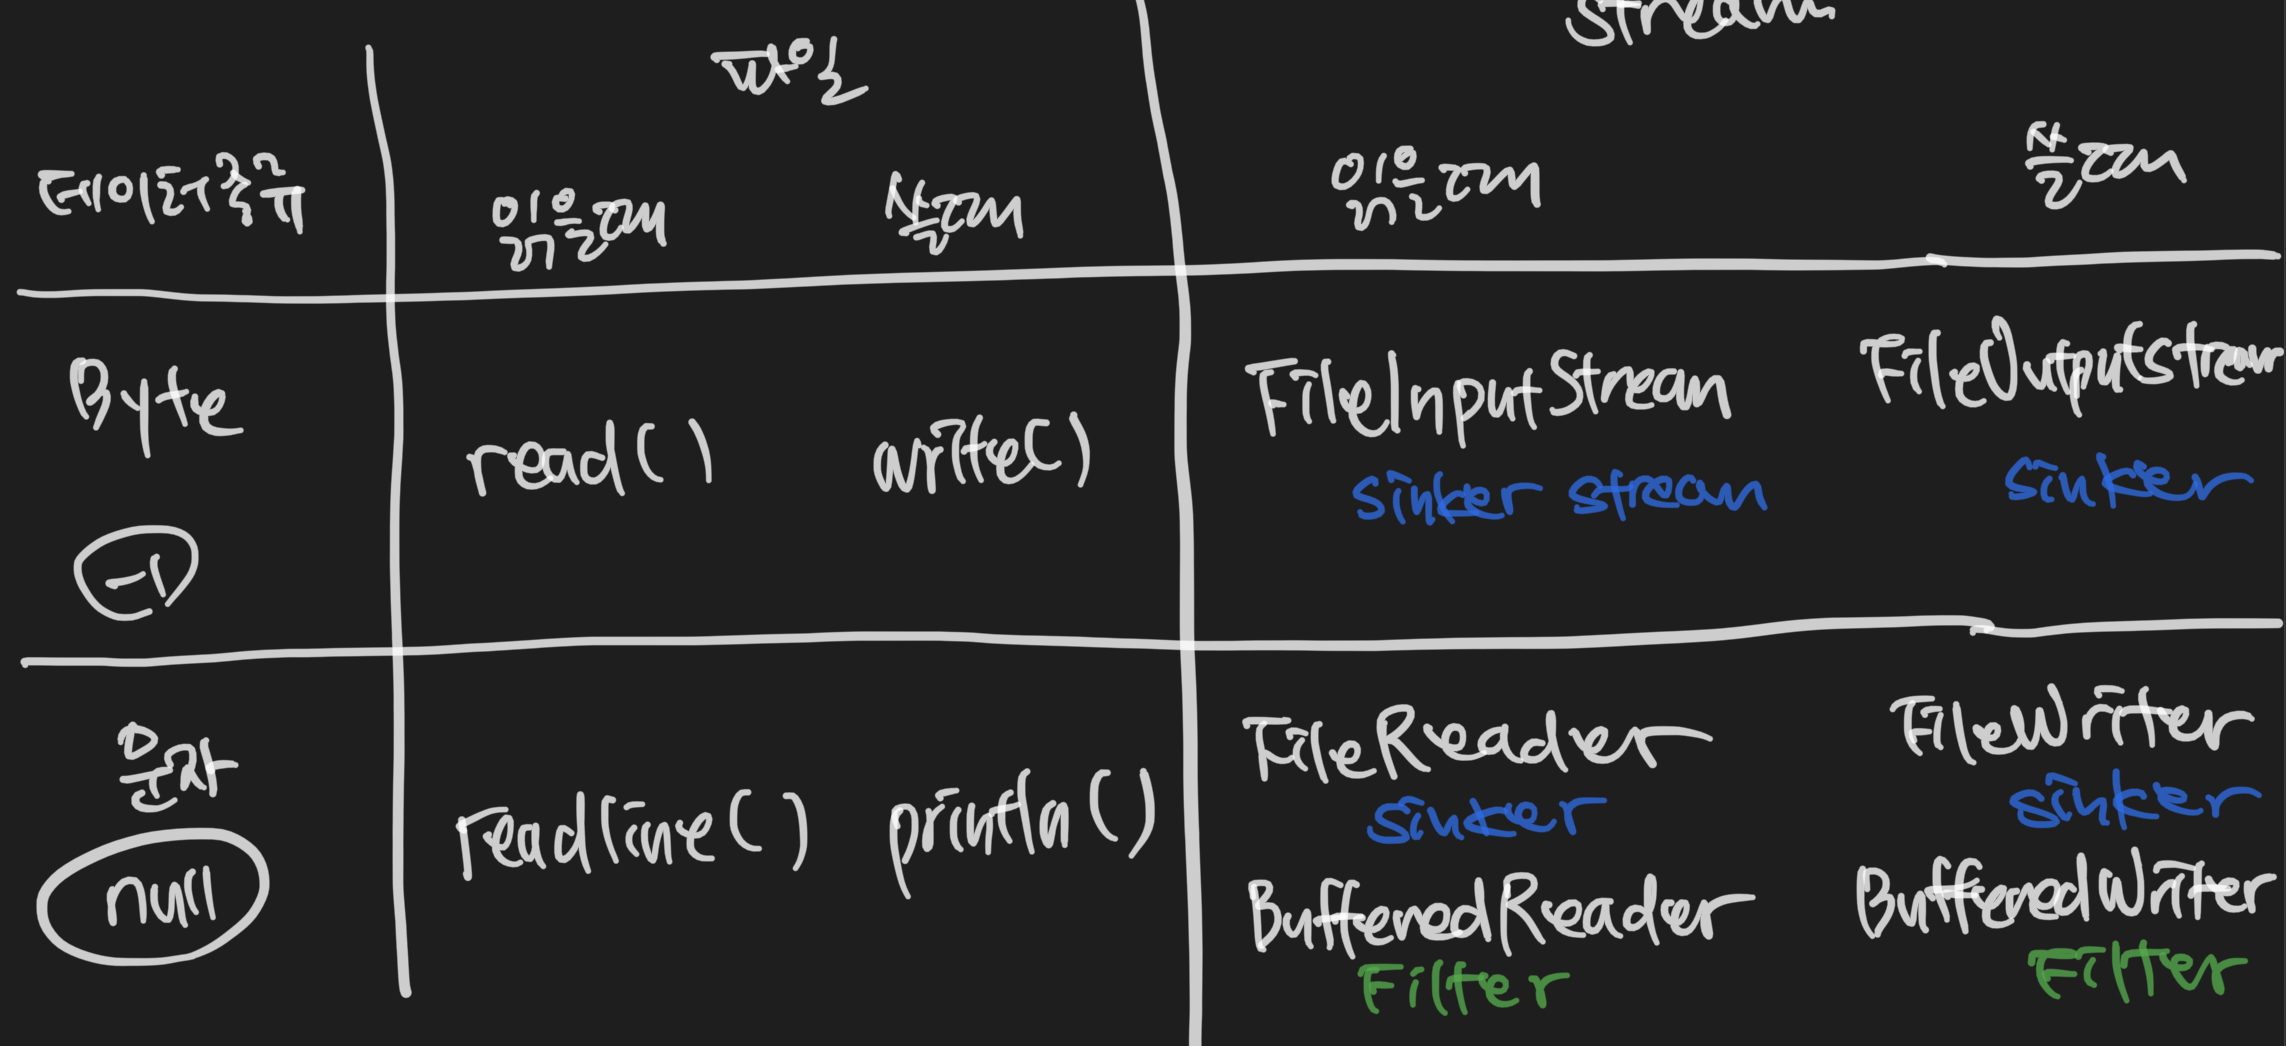 Stream
파일
데이터종류 읽을때 쓸때 읽을때 쓸때
Byte read() write() FileInputStream FileOutputStream
sinker stream sinker
-1
문자 readline() println() FileReader FileWriter
sinker sinker
null BufferedReader BufferedWriter
Filter Filter